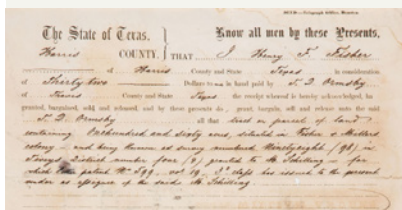 The State of Texas. Know all men by these Presents,
Harris COUNTY. THAT I Henry F. Fisher
of Harris County and State Texas in consideration
of Thirty two Dollars to me in hand paid by
of County and State Texas the receipt whereof is hereby acknowledged, ha
granted, bargained, sold and released, and by these presents do grant, bargain, sell and release unto the said
Ormsby all that tract or parcel of land
containing One hundred and sixty acres, situated in Fisher & Millers
colony and being known as survey numbered Ninety eight (98) in
District number four (4) granted to Schilling for
which patent No 599 vol 19 has issued to the present
as assignee of the said Schilling